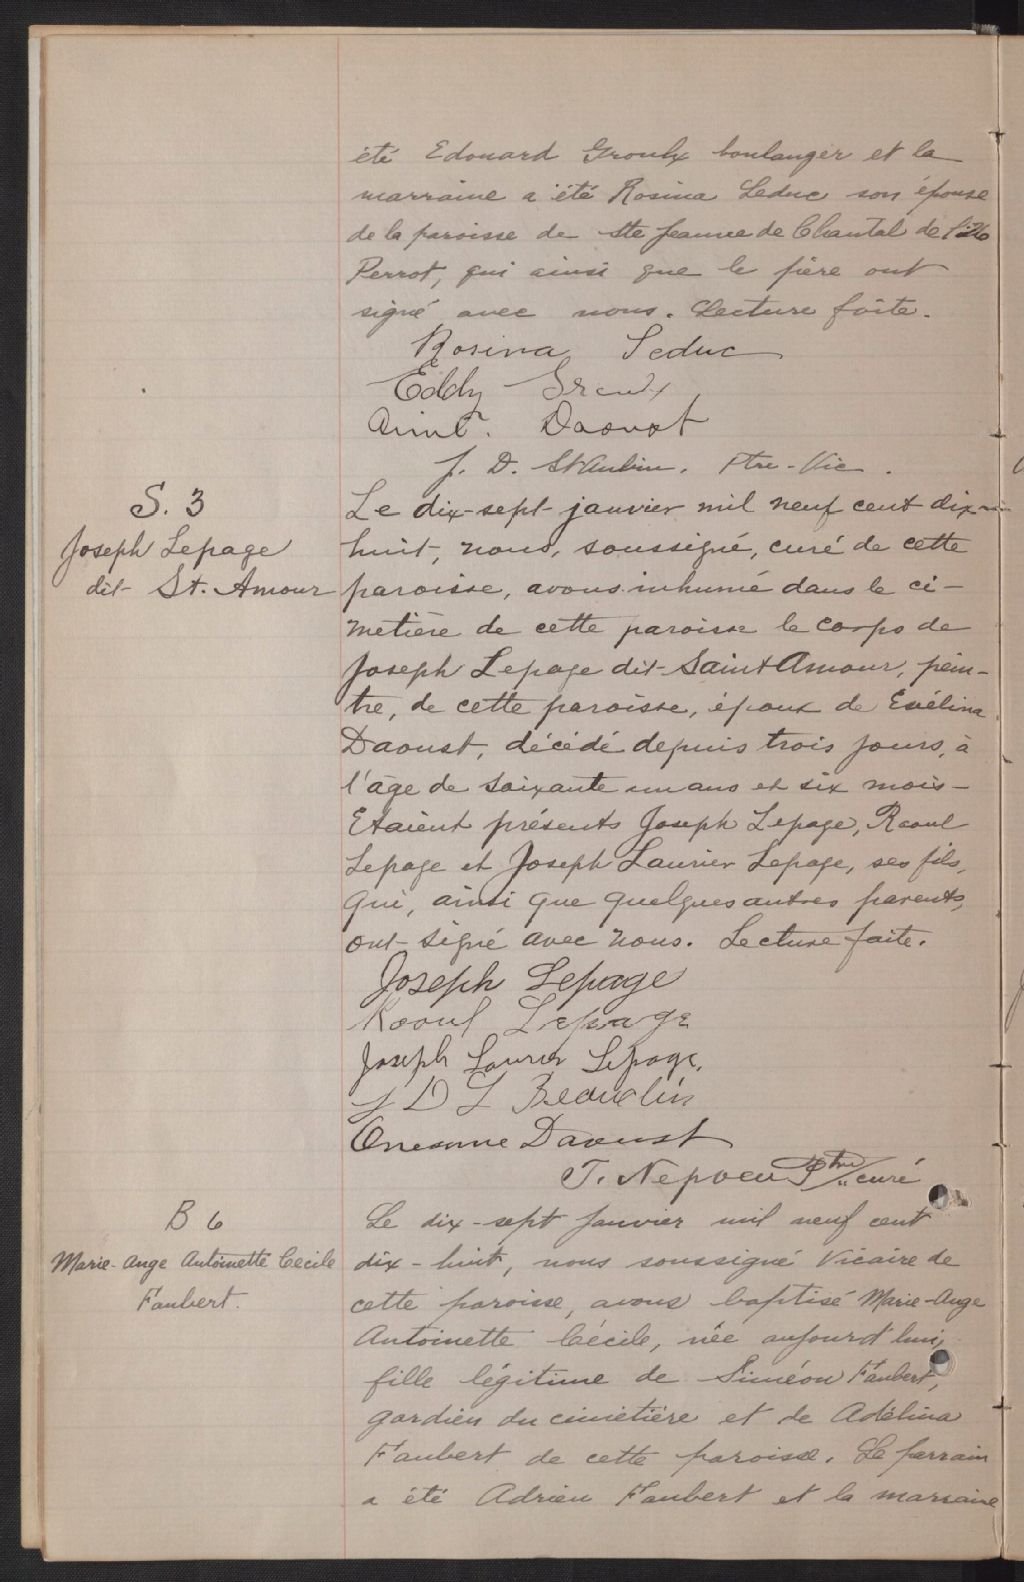 été Edouard Groulx boulanger et la
marraine a été Rosina Leduc son épouse
de la paroisse de Ste Jeanne de Chantal de l'île
Perrot, qui ainsi que le père ont
signé avec nous. Lecture faite.
Rosina Leduc
Eddy Groulx
Aimé. Daoust
J. D. St Aubin. Ptre-Vic.
S. 3
Joseph Lepage
dit St. Amour
Le dix-sept janvier mil neuf cent dix-
huit, nous, soussigné, curé de cette
paroisse, avons inhumé dans le ci-
metière de cette paroisse le corps de
Joseph Lepage dit Saint Amour, pein-
tre, de cette paroisse, époux de Evélina
Daoust, décédé depuis trois jours, à
l'âge de soixante un ans et six mois-
Etaient présents Joseph Lepage, Raoul
Lepage et Joseph Laurier Lepage, ses fils,
qui, ainsi que quelques autres parents,
ont signé avec nous. Lecture faite.
Joseph Lepage
Raoul Lepage
Joseph Laurier Lepage.
J D L Beaudin
Onesime Daoust
T. Nepveu Ptre curé
B 6
Marie-Ange Antoinette Cécile
Faubert.
Le dix-sept janvier mil neuf cent
dix-huit, nous soussigné Vicaire de
cette paroisse, avons baptisé Marie-Ange
Antoinette Cécile, née aujourd'hui,
fille légitime de Siméon Faubert,
gardien du cimetière et de Adélina
Faubert de cette paroisse. Le parrain
a été Adrien Faubert et la marraine